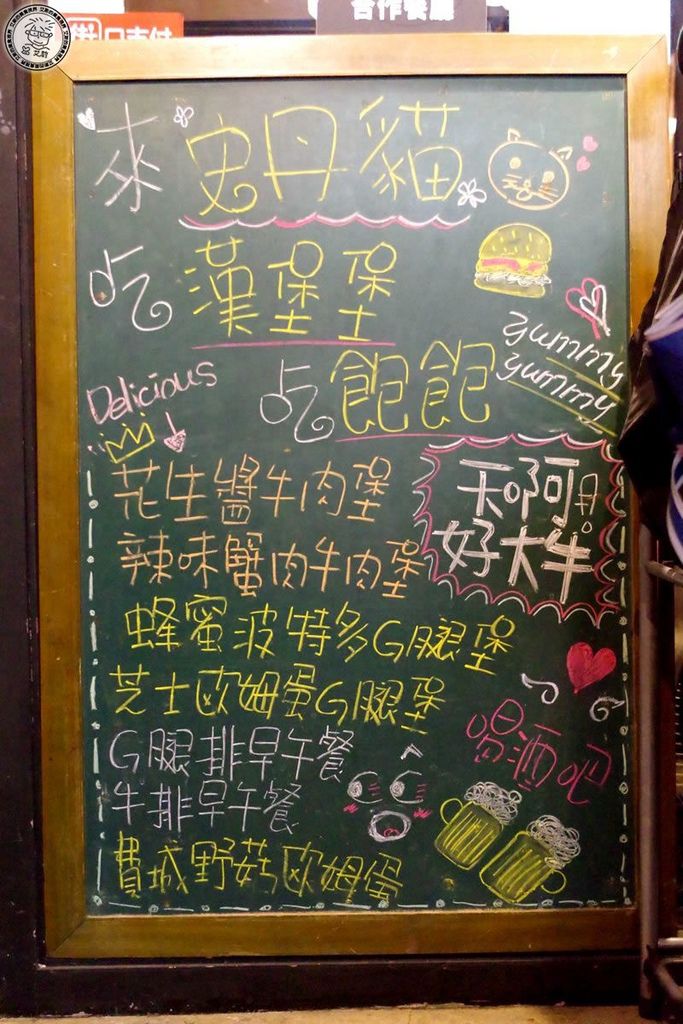 合作餐廳
街口支付
來 史丹貓
吃 漢堡堡
yummy
yummy
Delicious
吃 飽飽
花生醬牛肉堡
天啊
好大牛
辣味蟹肉牛肉堡
蜂蜜波特多G腿堡
芝士歐姆蛋G腿堡
喝酒吧
G腿排早午餐
牛排早午餐
費城野菇歐姆蛋